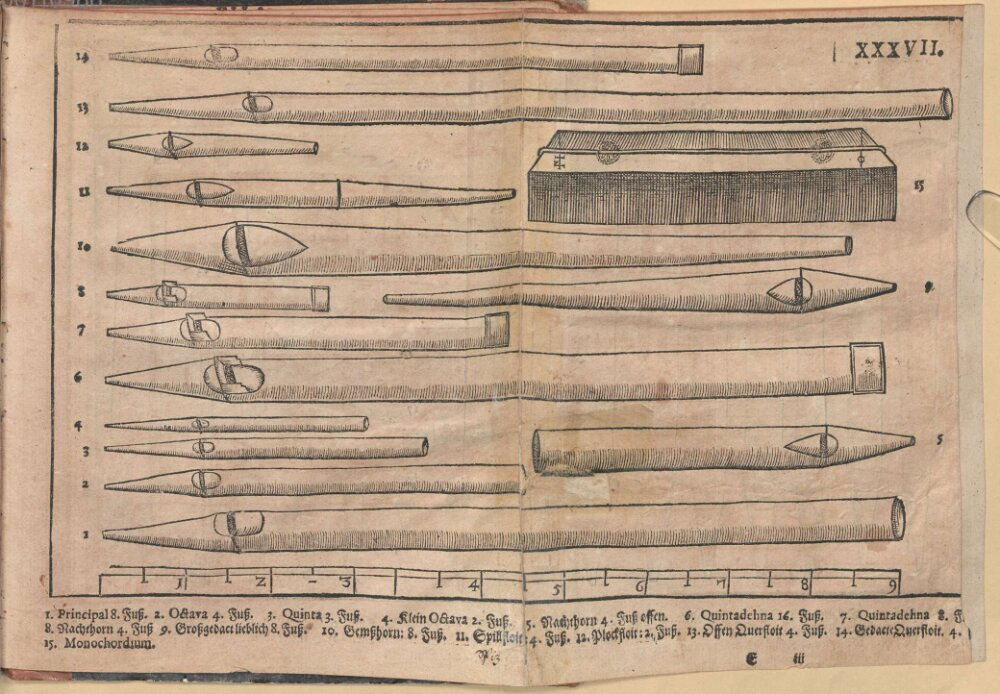 XXXVII.
14
13
12
11
15
10
8
9
7
6
4
3
5
2
1
1 2 3 4 5 6 7 8 9
1. Principal 8. Fuß. 2. Octava 4. Fuß. 3. Quinta 3. Fuß. 4. Klein Octava 2. Fuß. 5. Nachthorn 4. Fuß offen. 6. Quintadehna 16. Fuß. 7. Quintadehna 8. F
8. Nachthorn 4. Fuß 9. Großgedact lieblich 8. Fuß. 10. Gemßhorn: 8. Fuß. 11. Spillfloit: 4. Fuß. 12. Plockfloit: 2. Fuß. 13. Offen Querfloit 4. Fuß. 14. Gedacte Querfloit. 4.
15. Monochordium.
E iii